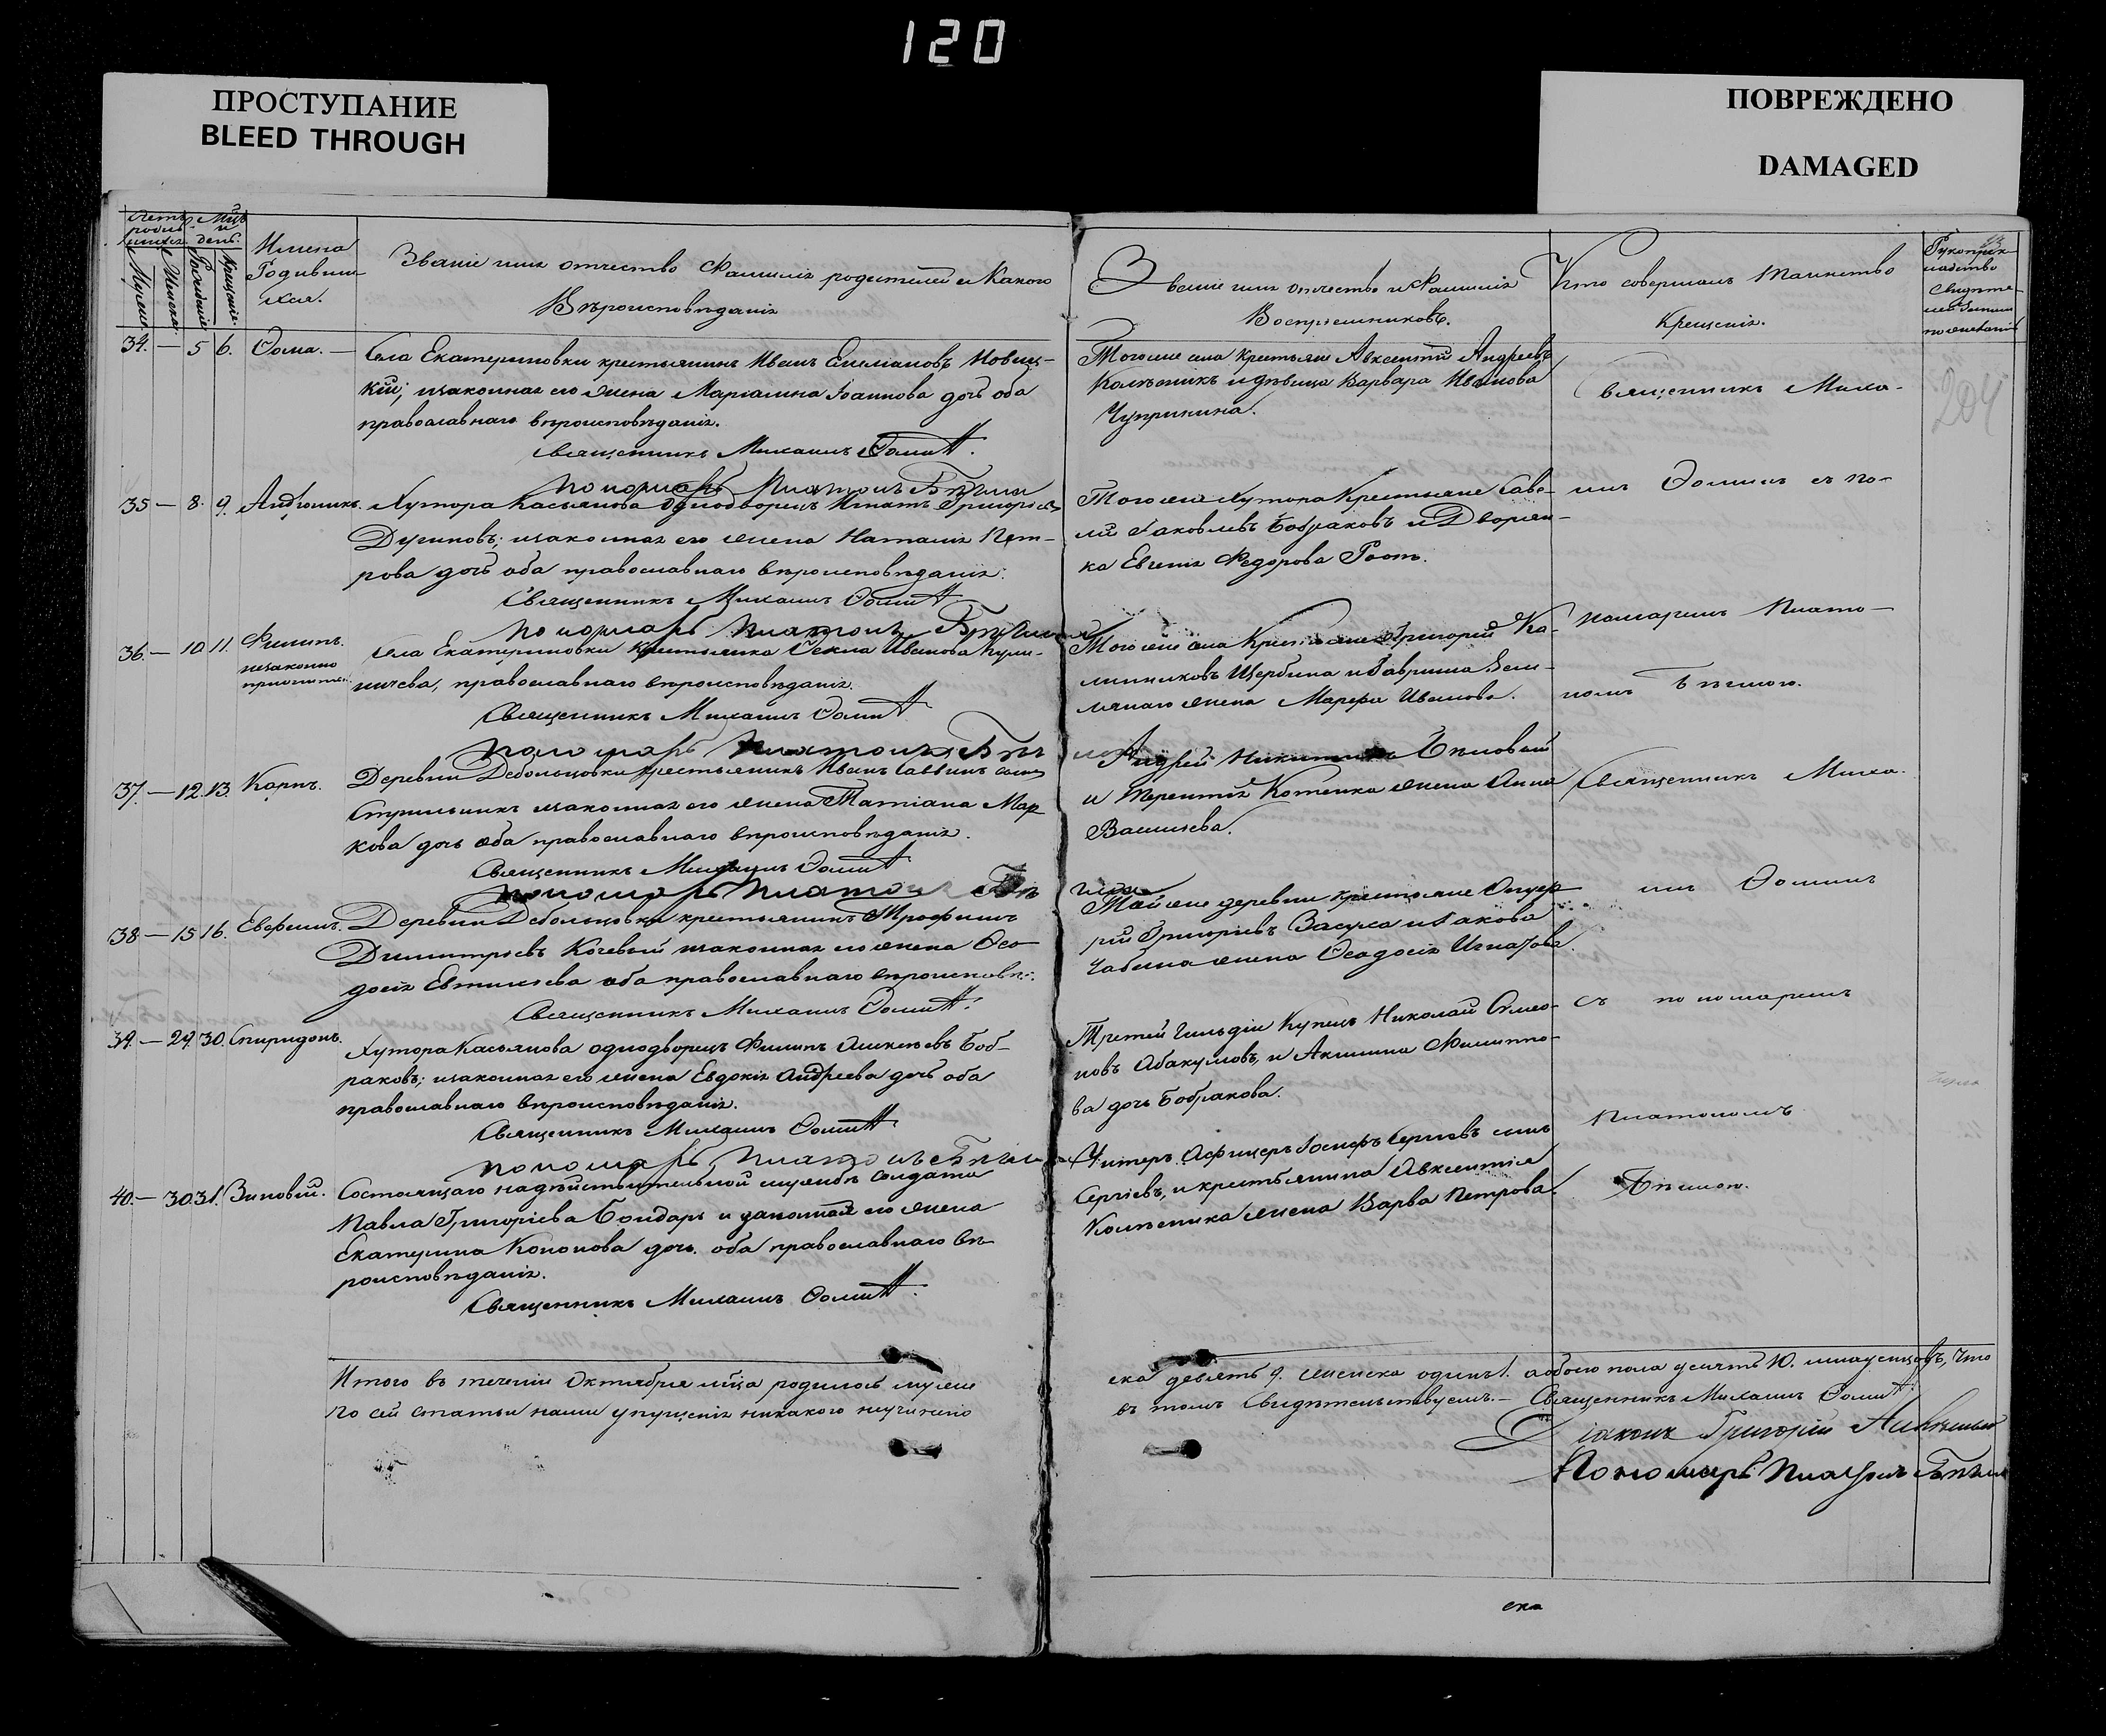 120
ПРОСТУПАНИЕ
BLEED THROUGH
ПОВРЕЖДЕНО
DAMAGED
Имена
Родивши
хся.
Званіе имя отчество Фамилія родителей и Какого
Вѣроисповѣданія
Званіе имя отчество и Фамилія
Воспріемниковъ.
Кто совершалъ таинство
Крещенія.
204
34. — 5 6. Ѳома. — Села Екатериновки крестьянинъ Иванъ Емельяновъ Новиц-
кій; изаконная его жена Марьяна Іоаннова дочь оба
православнаго вѣроисповѣданія.
Священникъ Михаилъ Ѳоминъ
пономарь Платонъ
Тогоже села крестьяне Авксентій Андреевъ
Колѣсникъ идѣвица Варвара Иванова
Чуприкина.
Священникъ Миха-
35 — 8. 9. Андроникъ. Хутора Касьянова Однодворецъ Игнатъ Григорьевъ
изаконная его жена Наталія Пет-
рова дочь оба православнаго вѣроисповѣданія.
Священникъ Михаилъ Ѳоминъ
пономарь Платонъ
Тогоже Хутора Крестьяне Саве-
лій Яковлевъ Бобраковъ и Дворян-
ка Евгенія Федорова Роот.
илъ Ѳоминъ съ по-
36. — 10 11. Филипъ.
незаконно
Села Екатериновки Крестьянка Ѳекла Иванова
православнаго вѣроисповѣданія.
Священникъ Михаилъ Ѳоминъ
пономарь Платонъ
Тогоже села Крестьяне Григорій Ка-
линниковъ Щербина и Гаврила Зем-
лянаго жена Марфа Иванова.
номаремъ Плато-
номъ
37. — 12. 13. Карпъ. Деревни Дебольцовки крестьянинъ Иванъ Саввинъ сынъ
Стрильникъ изаконная его жена Татіана Мар
кова дочь оба православнаго вѣроисповѣданія.
Священникъ Михаилъ Ѳоминъ
пономарь Платонъ
Андрей
и Терентія Котенка жена Анна
Васильева.
Священникъ Миха.
38 — 15 16. Евфимъ. Деревни Дебольцовки крестьянинъ Трофимъ
Димитріевъ Кочевый изаконная его жена Ѳео
досія Евтихіева оба православнаго вѣроисповѣ.
Священникъ Михаилъ Ѳоминъ
Той же деревни крестьяне Онуф
рій Григорьевъ Засуха и Якова
Чабана жена Ѳеодосія Игнатова.
илъ Ѳоминъ
39. — 29. 30. Спиридонъ. Хутора Касьянова однодворецъ Филипъ Алексѣевъ Боб-
раковъ; изаконная его жена Евдокія Андреева дочь оба
православнаго вѣроисповѣданія.
Священникъ Михаилъ Ѳоминъ
пономарь Платонъ
Третей Гильдіи Купецъ Николай Симео-
новъ Абакумовъ, и Акилина Филиппо-
ва дочь Бобракова.
съ пономаремъ
40. — 30 31. Зиновій. Состоящаго надѣйствительной службѣ солдата
Павла Григоріева Бондарь и законная его жена
Екатерина Кононова дочь. оба православнаго вѣ
роисповѣданія.
Священникъ Михаилъ Ѳоминъ
Унтеръ Афицеръ Іосифъ Сергѣевъ сынъ
Сергіевъ, и крестьянина Авксентія
Колѣсника жена Варва Петрова.
Платономъ
Итого въ теченіи Октября мѣца родилось муже
ска девять 9. женска одинъ 1. а обоего пола десять 10. младенцовъ, что
по сей статьи нами упущенія никакого неучинено
въ томъ Свидѣтельствуемъ. — Священникъ Михаилъ Ѳоминъ
Діаконъ Григорій
Пономарь Платонъ
ска